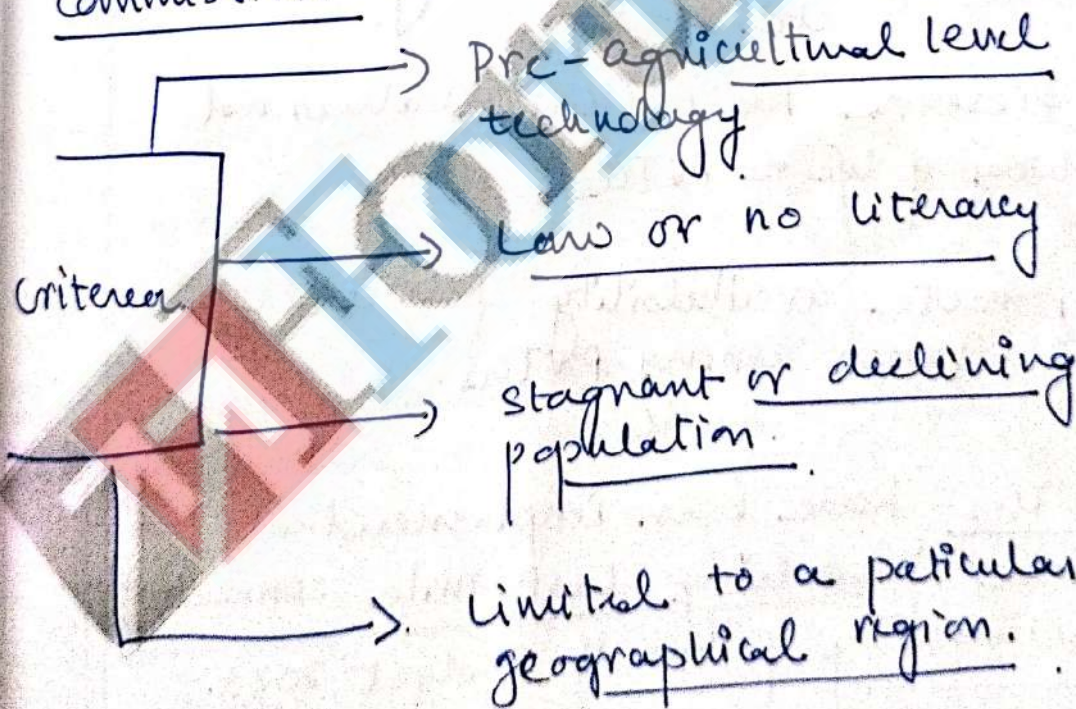 Pre-agricultural level
technology.
Low or no literarcy
criterea.
stagnant or declining
population.
Limited to a paticular
geographical region.